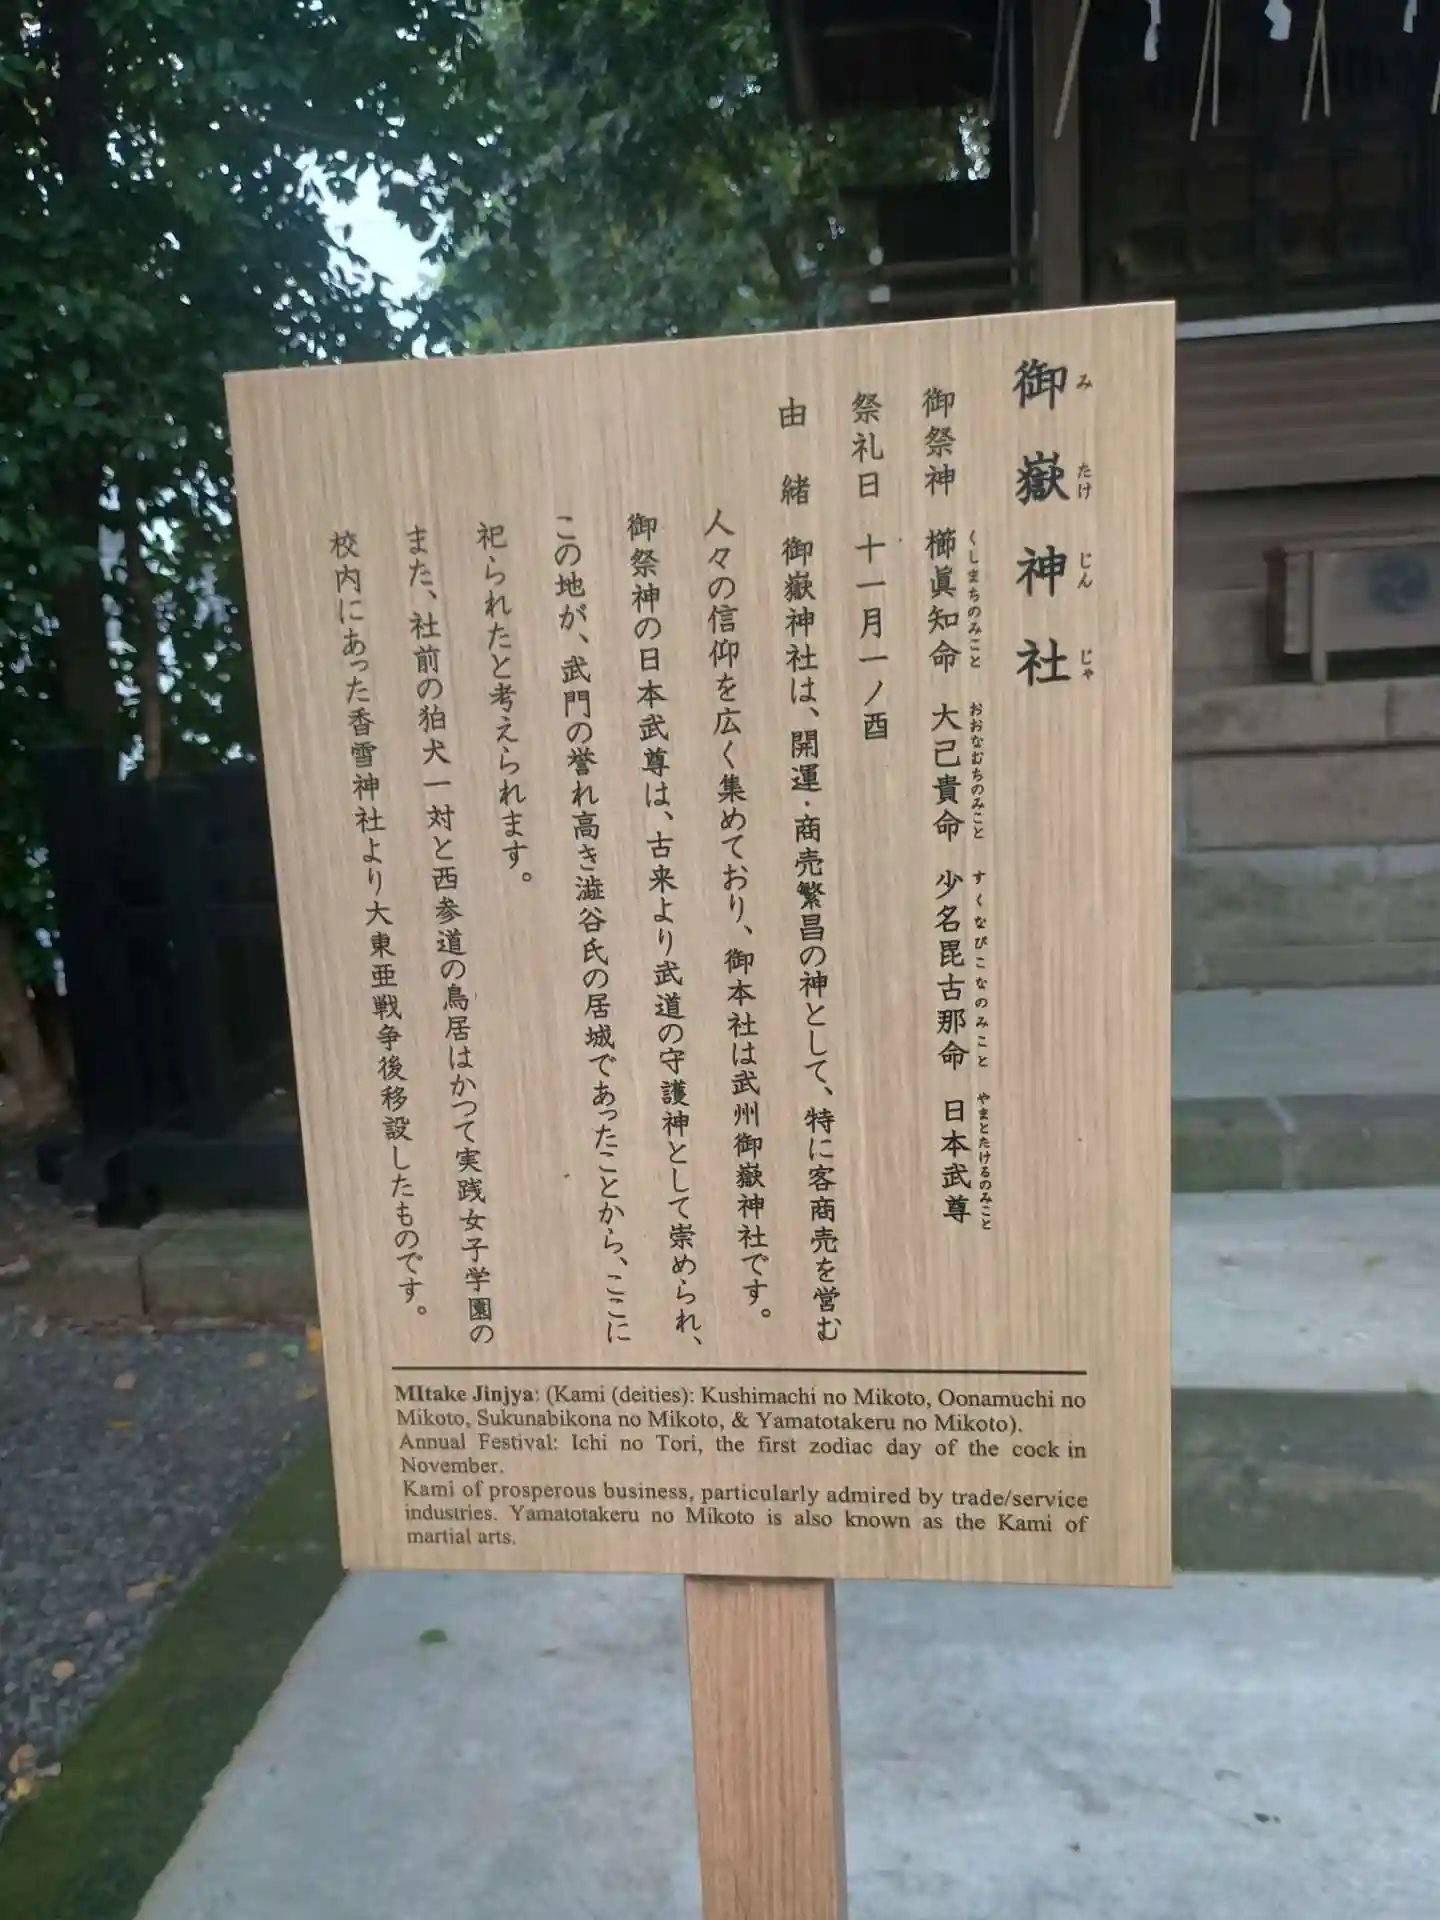 御嶽神社
みたけじんじゃ
御祭神 櫛眞知命 大己貴命 少名毘古那命 日本武尊
くしまちのみこと おおなむちのみこと すくなびこなのみこと やまとたけるのみこと
祭礼日 十一月一ノ酉
由緒 御嶽神社は、開運・商売繁昌の神として、特に客商売を営む
人々の信仰を広く集めており、御本社は武州御嶽神社です。
御祭神の日本武尊は、古来より武道の守護神として崇められ、
この地が、武門の誉れ高き澁谷氏の居城であったことから、ここに
祀られたと考えられます。
また、社前の狛犬一対と西参道の鳥居はかつて実践女子学園の
校内にあった香雪神社より大東亜戦争後移設したものです。
MItake Jinjya: (Kami (deities): Kushimachi no Mikoto, Oonamuchi no
Mikoto, Sukunabikona no Mikoto, & Yamatotakeru no Mikoto).
Annual Festival: Ichi no Tori, the first zodiac day of the cock in
November.
Kami of prosperous business, particularly admired by trade/service
industries. Yamatotakeru no Mikoto is also known as the Kami of
martial arts.